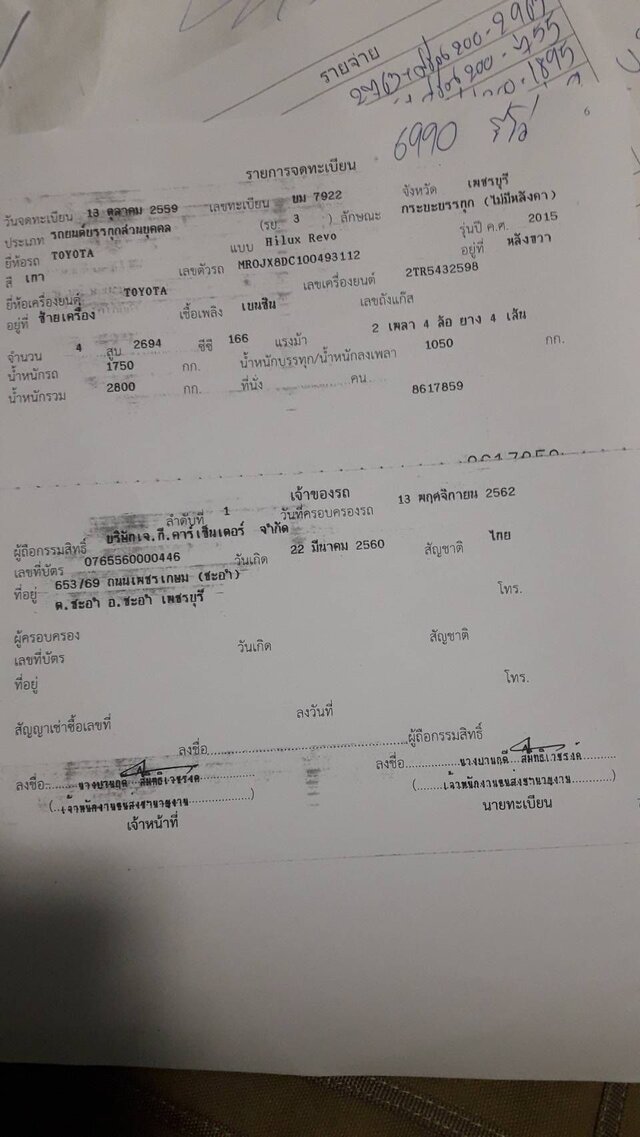 รายจ่าย
6990 รีโว่
รายการจดทะเบียน
วันจดทะเบียน 13 ตุลาคม 2559 เลขทะเบียน บม 7922 จังหวัด เพชรบุรี
ประเภท รถยนต์บรรทุกส่วนบุคคล (รย 3 ) ลักษณะ กระบะบรรทุก (ไม่มีหลังคา)
ยี่ห้อรถ TOYOTA แบบ Hilux Revo รุ่นปี ค.ศ. 2015
สี เทา เลขตัวรถ MROJX8DC100493112 อยู่ที่ หลังขวา
ยี่ห้อเครื่องยนต์ TOYOTA เลขเครื่องยนต์ 2TR5432598
อยู่ที่ ซ้ายเครื่อง เชื้อเพลิง เบนซิน เลขถังแก๊ส
จำนวน 4 สูบ 2694 ซีซี 166 แรงม้า 2 เพลา 4 ล้อ ยาง 4 เส้น
น้ำหนักรถ 1750 กก. น้ำหนักบรรทุก/น้ำหนักลงเพลา 1050 กก.
น้ำหนักรวม 2800 กก. ที่นั่ง คน. 8617859
เจ้าของรถ
ลำดับที่ 1 วันที่ครอบครองรถ 13 พฤศจิกายน 2562
ผู้ถือกรรมสิทธิ์ บริษัทเจ.กี.คาร์เซ็นเตอร์ จำกัด
เลขที่บัตร 0765560000446 วันเกิด 22 มีนาคม 2560 สัญชาติ ไทย
ที่อยู่ 653/69 ถนนเพชรเกษม (ชะอำ)
ต.ชะอำ อ.ชะอำ เพชรบุรี โทร.
ผู้ครอบครอง
เลขที่บัตร วันเกิด สัญชาติ
ที่อยู่ โทร.
สัญญาเช่าซื้อเลขที่ ลงวันที่
ลงชื่อ ผู้ถือกรรมสิทธิ์
ลงชื่อ ลงชื่อ
(เจ้าพนักงานขนส่งชำนาญงาน) (เจ้าพนักงานขนส่งชำนาญงาน)
เจ้าหน้าที่ นายทะเบียน